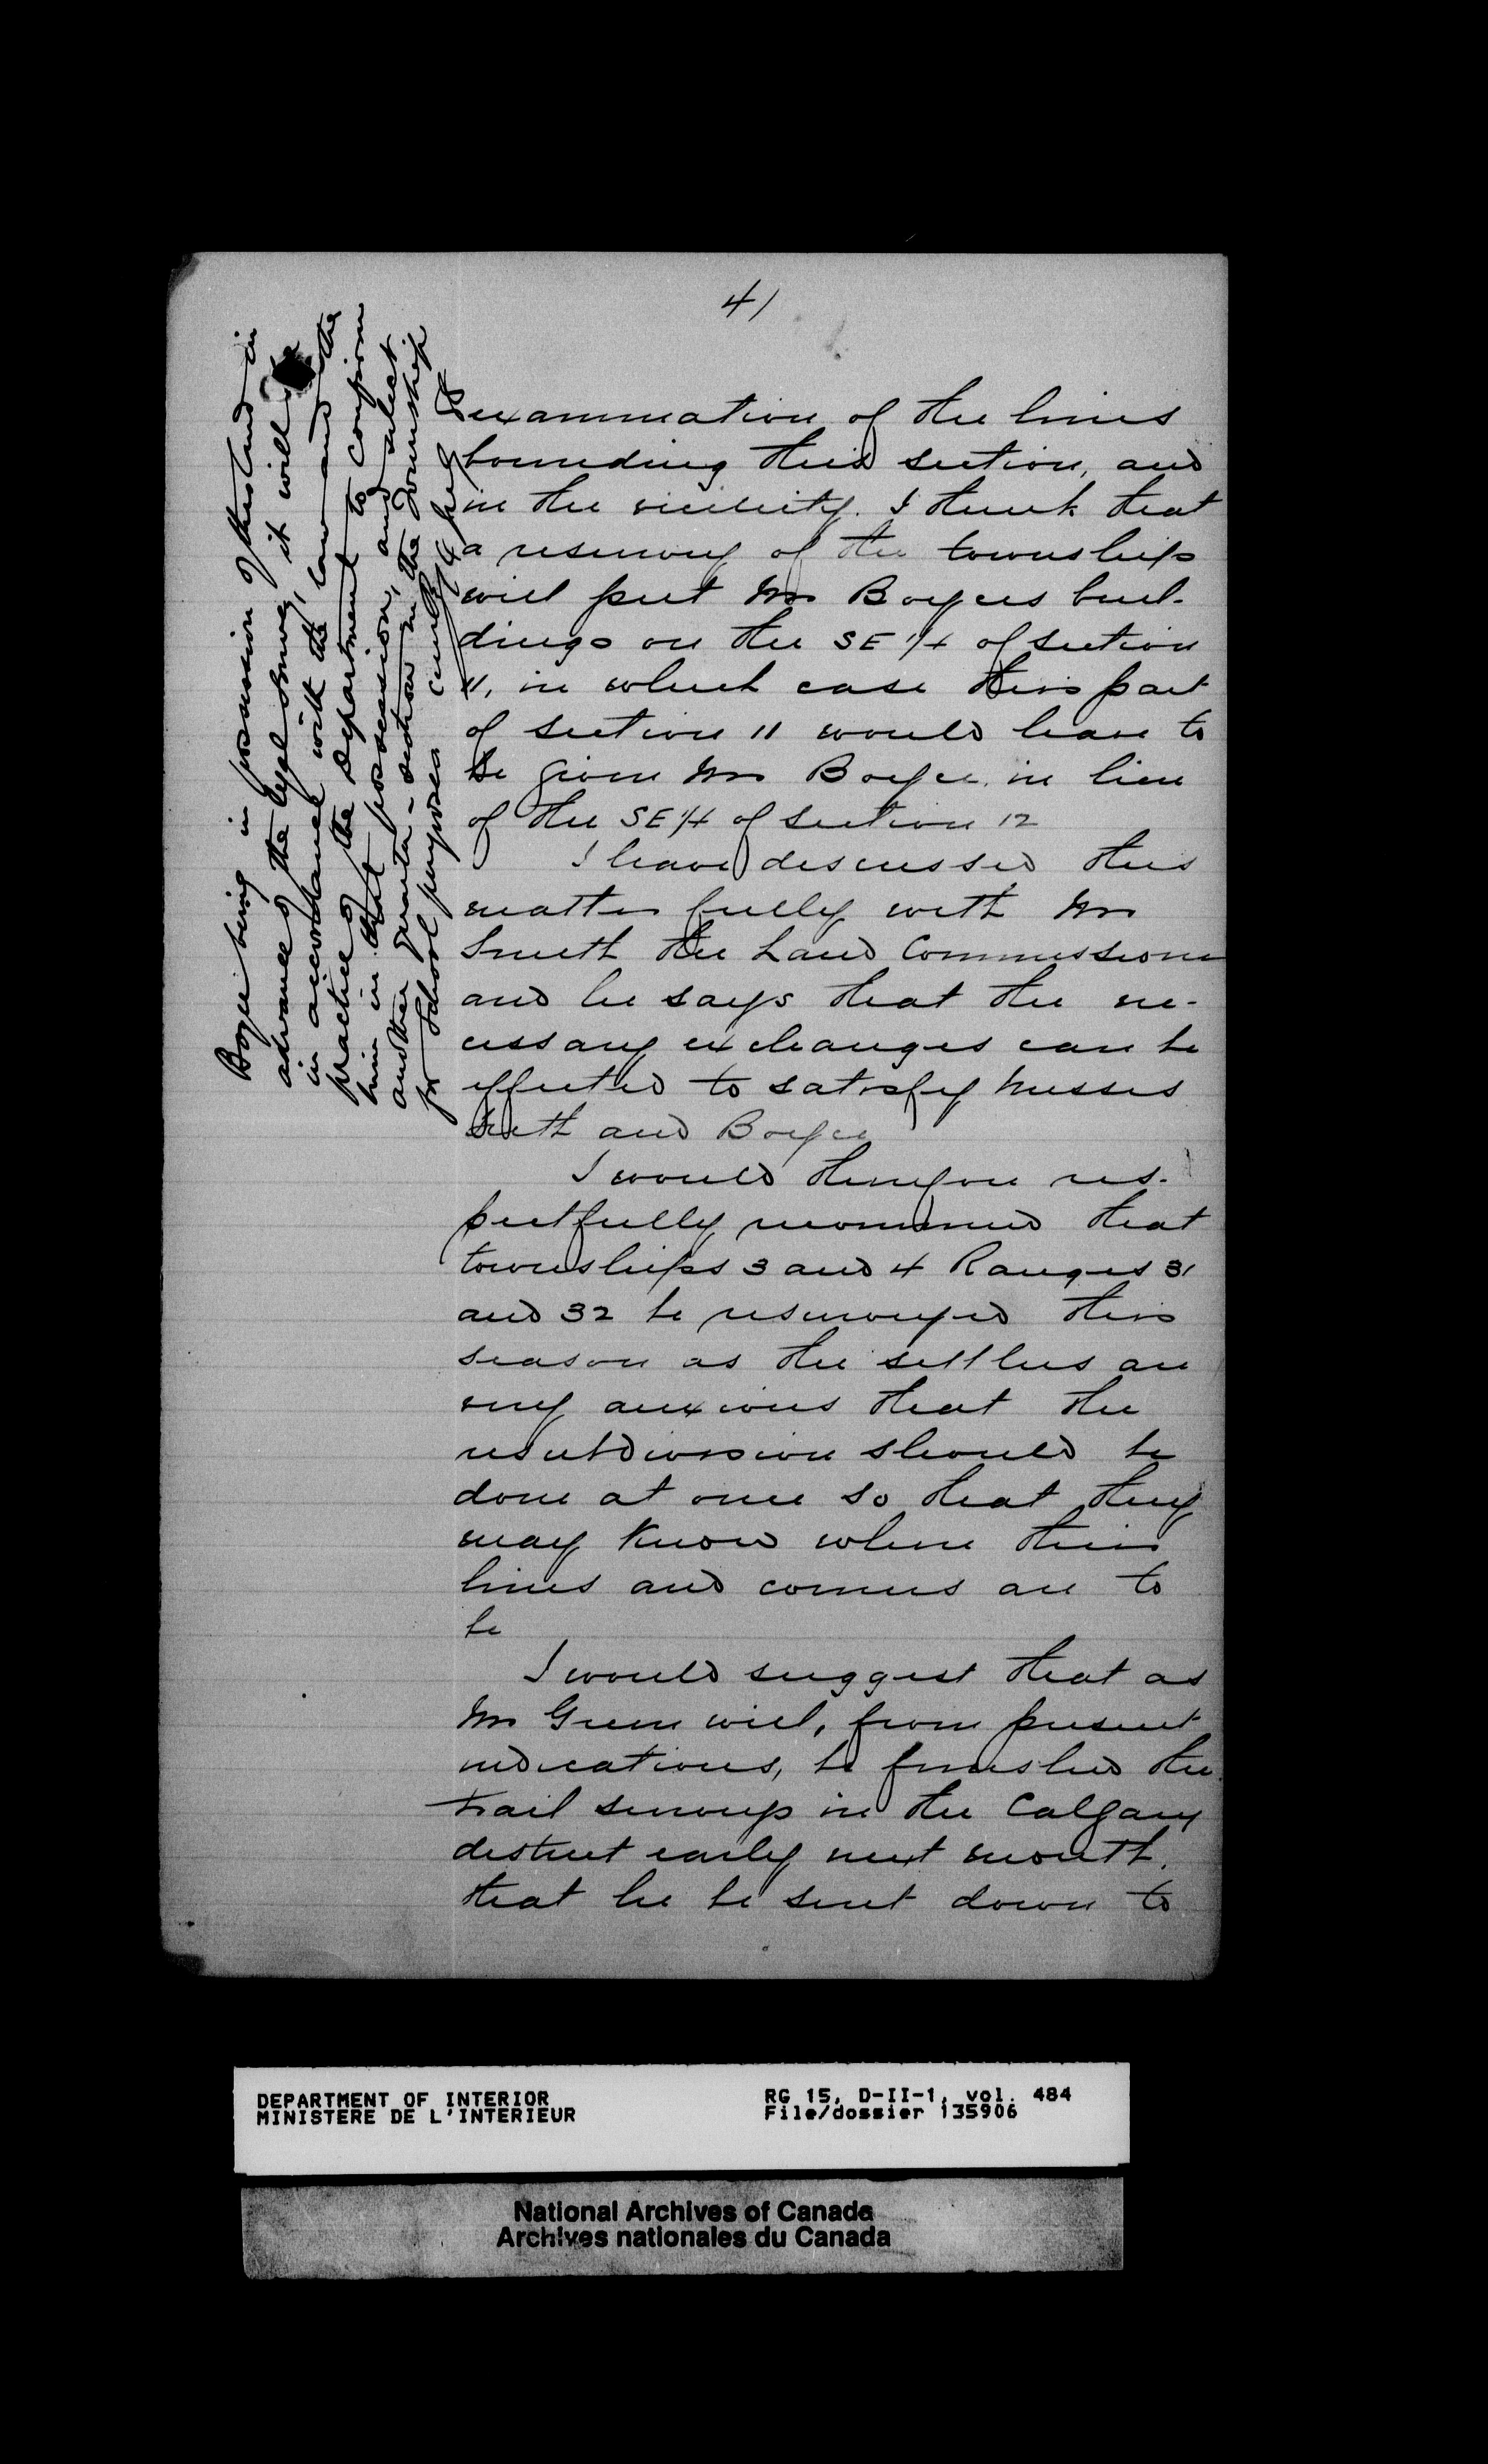 41
examination of the lines
bounding this section, and
in the vicinity. I think that
a resurvey of the township
will put Mr Boyces buil-
dings on the SE 1/4 of section
11, in which case this part
of section 11 would have to
be given Mr Boyce in lieu
of the SE 1/4 of section 12
I have discussed this
matter fully with Mr
Smith the Land Commissioner
and he says that the ne-
cessary exchanges can be
effected to satisfy Messrs
and Boyce
I would therefore res-
pectfully recommend that
townships 3 and 4 Ranges 31
and 32 be resurveyed this
season as the settlers are
very anxious that the
resubdivision should be
done at once so that they
may know where their
lines and corners are to
be
I would suggest that as
Mr Green will, from present
indications, be finished the
trail surveys in the Calgary
district early next month,
that he be sent down to
Boyce being in possession of this land in
advance of the legal survey, it will be
in accordance with the law and the
practice of the Department to confirm
him in that possession, and select
another quarter-section in the Township
for School purposes
DEPARTMENT OF INTERIOR
MINISTERE DE L'INTERIEUR
RG 15, D-II-1, vol. 484
File/dossier 135906
National Archives of Canada
Archives nationales du Canada